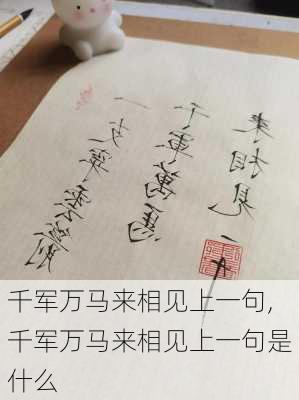 一支穿雲箭
千軍萬馬
来相見
千军万马来相见上一句,
千军万马来相见上一句是
什么